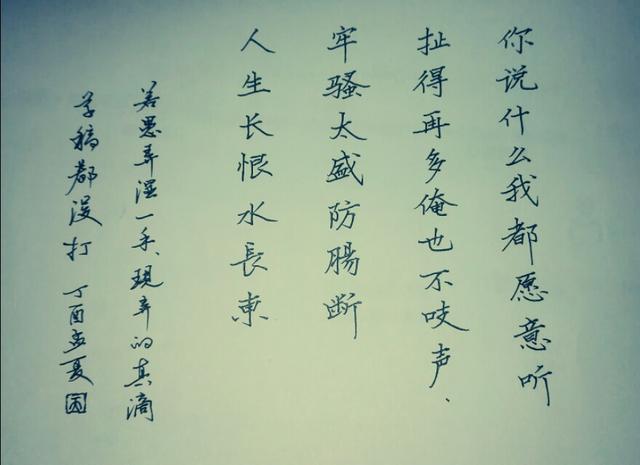 你说什么我都愿意听
扯得再多俺也不吱声、
牢骚太盛防腸断
人生长恨水長東
若愚弄湿一手、現弄的真滴
草稿都没打 丁酉孟夏